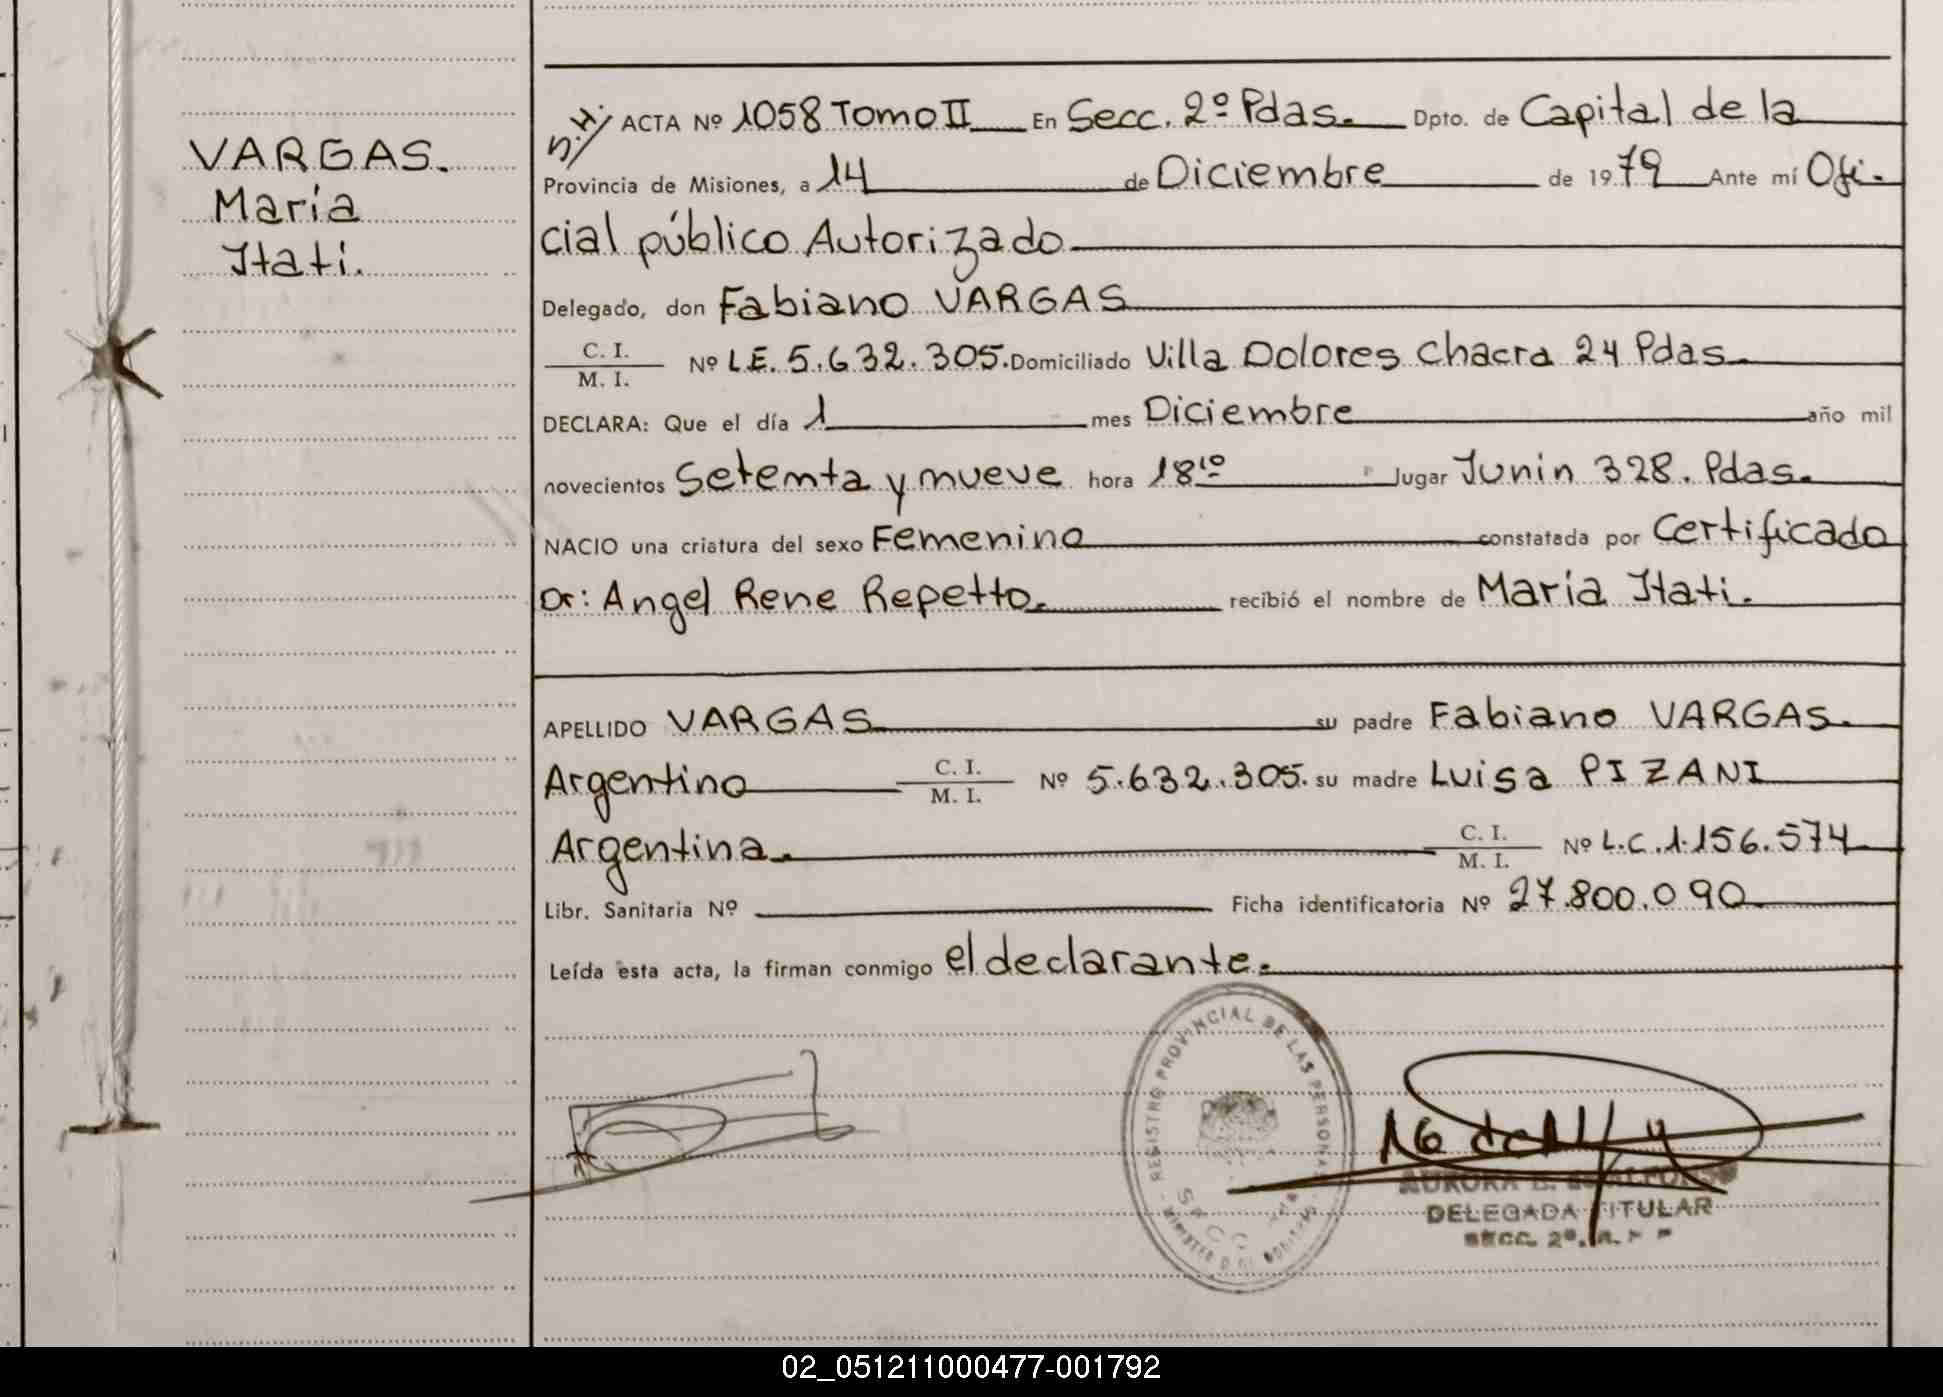 VARGAS.
María
Itatí.
S.H/ ACTA Nº 1058 Tomo II En Secc. 2º Pdas. Dpto. de Capital de la
Provincia de Misiones, a 14 de Diciembre de 1979 Ante mí Ofi-
cial público Autorizado
Delegado, don Fabiano VARGAS
C. I.
M. I. Nº L.E. 5.632.305. Domiciliado Villa Dolores Chacra 24 Pdas.
DECLARA: Que el día 1 mes Diciembre año mil
novecientos Setemta y mueve hora 18¹⁰ lugar Junin 328. Pdas.
NACIO una criatura del sexo Femenino constatada por Certificado
Dr: Angel Rene Repetto. recibió el nombre de María Itatí.
APELLIDO VARGAS su padre Fabiano VARGAS.
Argentino C. I.
M. I. Nº 5.632.305. su madre Luisa PIZANI
Argentina. C. I.
M. I. Nº L.C. 1.156.574
Libr. Sanitaria Nº Ficha identificatoria Nº 27.800.090
Leída esta acta, la firman conmigo el declarante.
REGISTRO PROVINCIAL DE LAS PERSONAS
AURORA E. de ALFONSO
DELEGADA TITULAR
SECC. 2º.
02_051211000477-001792